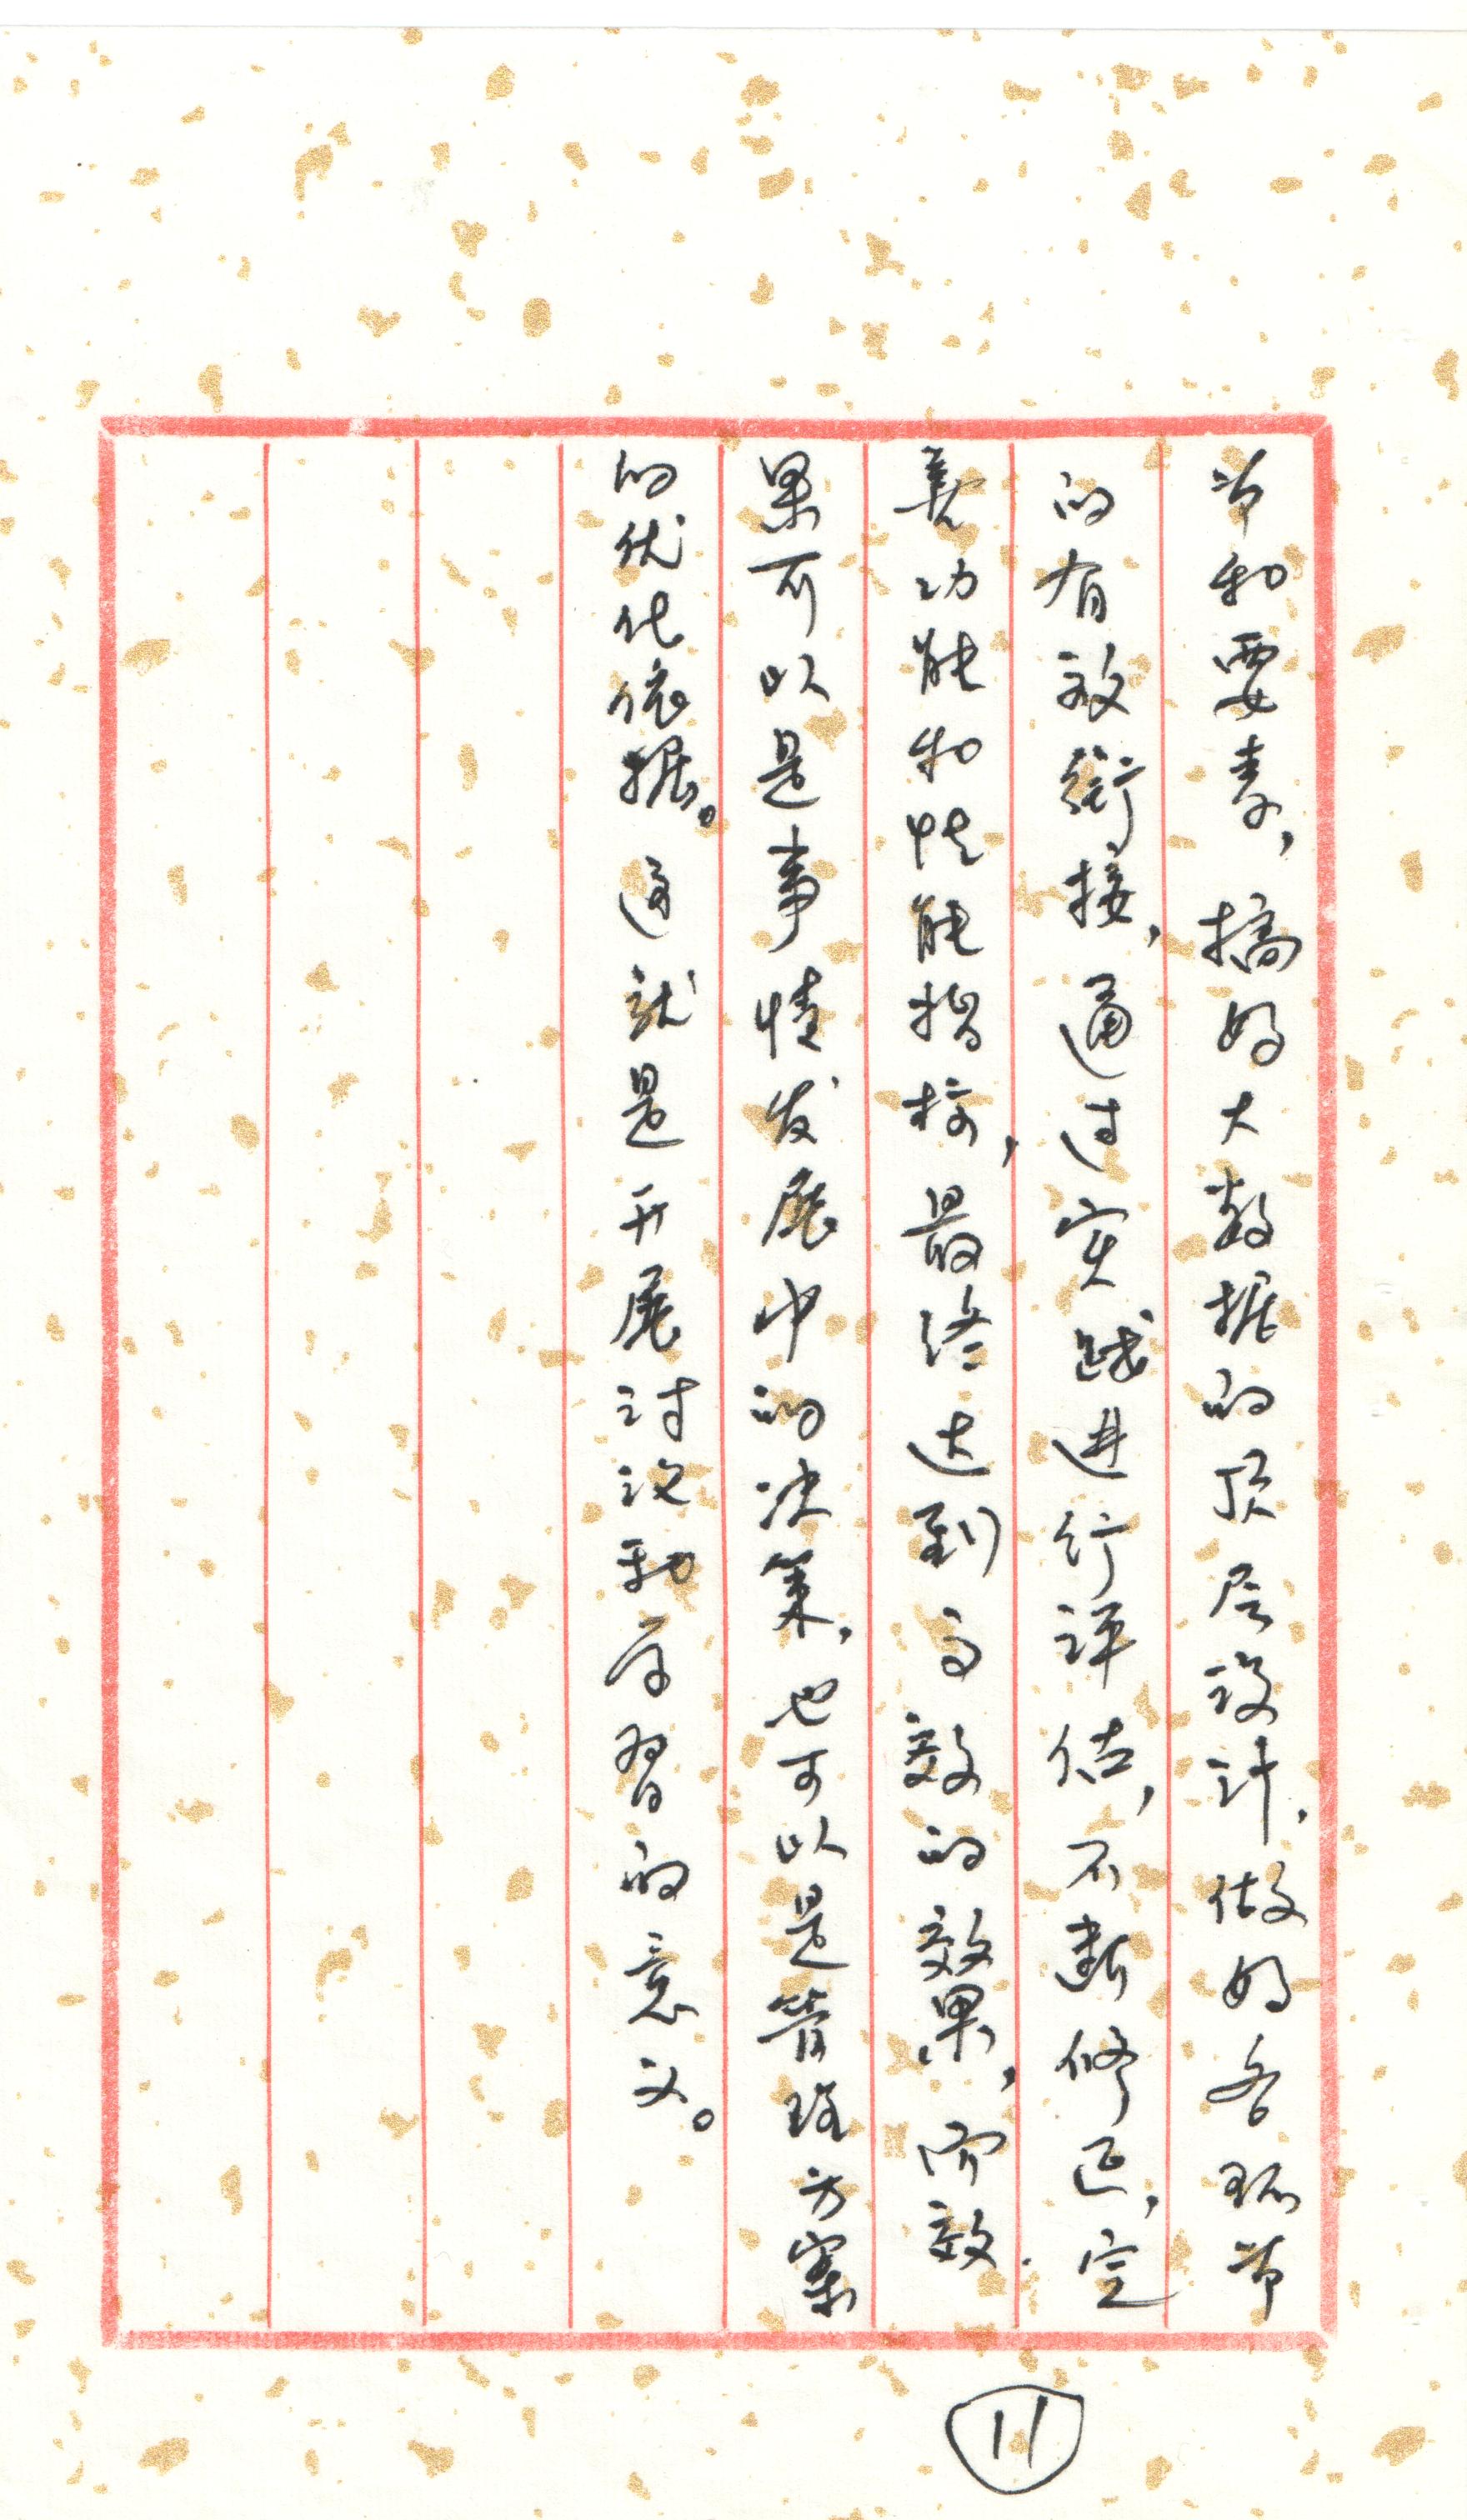 节和要素，搞好大数据的顶层设计，做好各环节
的有效衔接，通过实践进行评估，不断修正，完
善功能和性能指标，最终达到高效的效果，而效
果可以是事情发展中的决策，也可以是管理方案
的优化依据。这就是开展讨论和学习的意义。
11